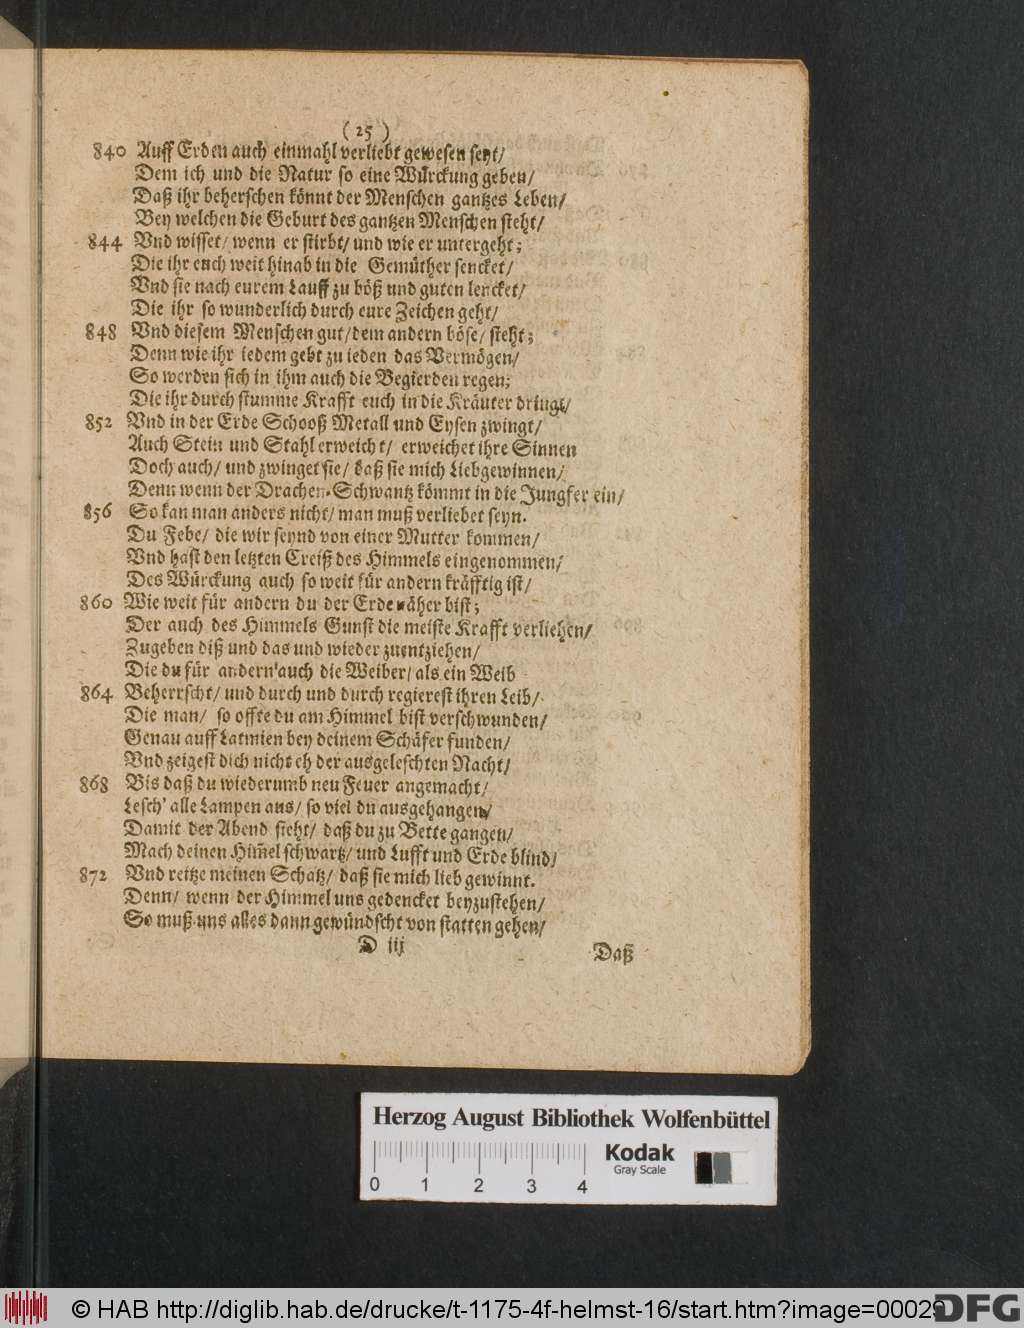 ( 25 )
840 Auff Erden auch einmahl verliebt gewesen seyt/
Dem ich und die Natur so eine Würckung geben/
Daß ihr beherschen könnt der Menschen gantzes Leben/
Bey welchen die Geburt des gantzen Menschen steht/
844 Vnd wisset/ wenn er stirbt/ und wie er untergeht;
Die ihr euch weit hinab in die Gemüther sencket/
Vnd sie nach eurem Lauff zu böß und guten lencket/
Die ihr so wunderlich durch eure Zeichen geht/
848 Vnd diesem Menschen gut/ dem andern böse/ steht;
Denn wie ihr iedem gebt zu ieden das Vermögen/
So werden sich in ihm auch die Begierden regen;
Die ihr durch stumme Krafft euch in die Kräuter dringt/
852 Vnd in der Erde Schooß Metall und Eysen zwingt/
Auch Stein und Stahl erweicht/ erweichet ihre Sinnen
Doch auch/ und zwinget sie/ daß sie mich Liebgewinnen/
Denn wenn der Drachen-Schwantz kömmt in die Jungfer ein/
856 So kan man anders nicht/ man muß verliebet seyn.
Du Febe/ die wir seynd von einer Mutter kommen/
Vnd hast den letzten Creiß des Himmels eingenommen/
Des Würckung auch so weit für andern kräfftig ist/
860 Wie weit für andern du der Erde näher bist;
Der auch des Himmels Gunst die meiste Krafft verliehen/
Zugeben diß und das und wieder zuentziehen/
Die du für andern auch die Weiber/ als ein Weib
864 Beherrscht/ und durch und durch regierest ihren Leib/
Die man/ so offte du am Himmel bist verschwunden/
Genau auff Latmien bey deinem Schäfer funden/
Vnd zeigest dich nicht eh der ausgeleschten Nacht/
868 Bis daß du wiederumb neu Feuer angemacht/
Lesch' alle Lampen aus/ so viel du ausgehangen/
Damit der Abend sieht/ daß du zu Bette gangen/
Mach deinen Him̄el schwartz/ und Lufft und Erde blind/
872 Vnd reitze meinen Schatz/ daß sie mich lieb gewinnt.
Denn/ wenn der Himmel uns gedencket beyzustehen/
So muß uns alles dann gewündscht von statten gehen/
D iij
Daß
Herzog August Bibliothek Wolfenbüttel
Kodak
Gray Scale
0 1 2 3 4
© HAB http://diglib.hab.de/drucke/t-1175-4f-helmst-16/start.htm?image=00029
DFG